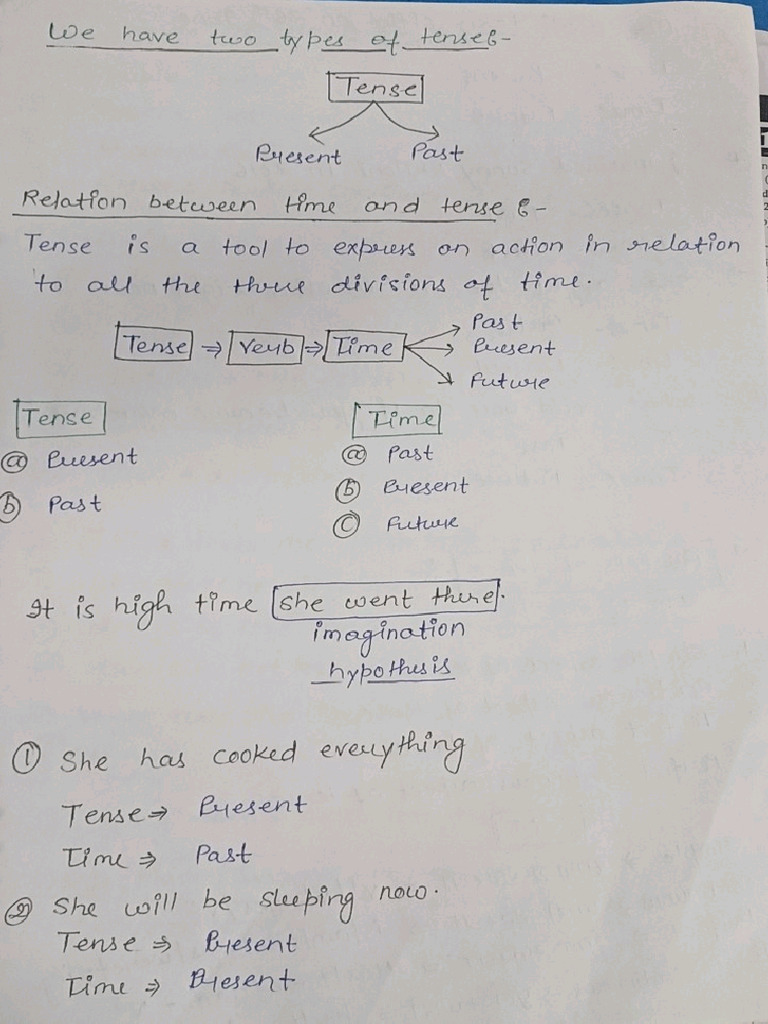 We have two types of tense :-
Tense
Present Past
Relation between time and tense :-
Tense is a tool to express an action in relation
to all the three divisions of time.
Tense ⇒ Verb ⇒ Time
Past
Present
Future
Tense
ⓐ Present
ⓑ Past
Time
ⓐ Past
ⓑ Present
ⓒ Future
It is high time she went there.
imagination
hypothesis
① She has cooked everything
Tense ⇒ Present
Time ⇒ Past
② She will be sleeping now.
Tense ⇒ Present
Time ⇒ Present